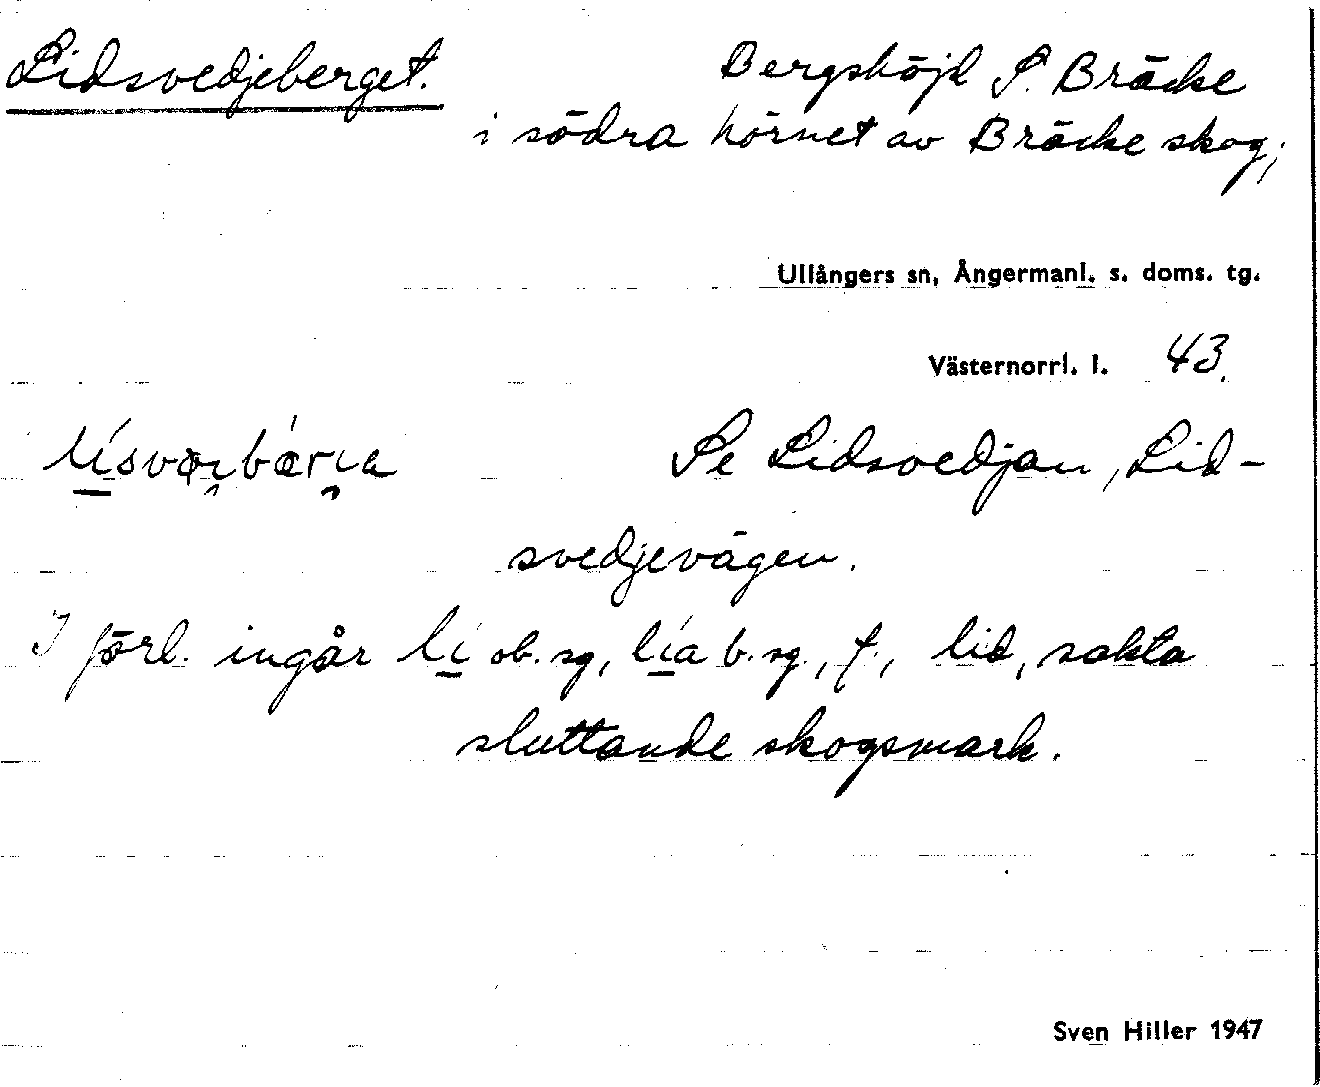 Lidsvedjeberget. Bergshöjd S. Bräcke
i södra hörnet av Bräcke skog;
Ullångers sn, Ångermanl. s. doms. tg.
Västernorrl. l. 43.
Se Lidsvedjan, Lid-
svedjevägen.
I förl. ingår lí ob. sg, lía b. sg., f., lid, sakta
sluttande skogsmark.
Sven Hiller 1947